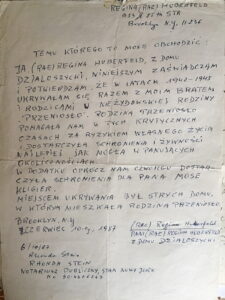 REGINA (RAE) HUBERFELD
Brooklyn N.Y. 11236
TEMU KTÓREGO TO MOŻE OBCHODZIĆ:
JA (RAE) REGINA HUBERFELD, Z DOMU
DZIALOSZYCKI, NINIEJSZYM ZAŚWIADCZAM
I POTWIERDZAM, ŻE W LATACH 1942-1945
UKRYWAŁAM SIĘ RAZEM Z MOIM BRATEM
I RODZICAMI U NIEŻYDOWSKIEJ RODZINY
PRZENIOSŁO. RODZINA PRZENIOSŁO
POMAGAŁA NAM W TYCH KRYTYCZNYCH
CZASACH ZA RYZYKIEM WŁASNEGO ŻYCIA
I DOSTARCZYŁA SCHRONIENIA I ŻYWNOŚCI
NAJLEPIEJ JAK MOGŁA W PANUJĄCYCH
OKOLICZNOŚCIACH.
W DODATKU OPRÓCZ NAM CZWORGU DOSTAR-
CZYŁA SCHRONIENIA DLA PANA MOSE
KLIGIER.
MIEJSCEM UKRYWANIA BYŁ STRYCH DOMU,
W KTÓRYM MIESZKAŁA RODZINA PRZENIOSŁO.
BROOKLYN, N.Y.
CZERWIEC 10-ty, 1987
(RAE) Regina Huberfeld
PANI (RAE) REGINA HUBERFELD
Z DOMU DZIALOSZYCKI
6/10/87
Rhonda Stein
RHONDA STEIN
NOTARIUSZ PUBLICZNY, STAN NOWY JORK